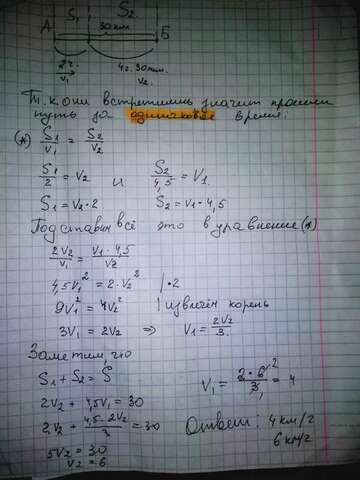 S₁ S₂
A 30км Б
2ч. 4ч. 30мин.
V₁ V₂
Т.к они встретились значит прошли
путь за одинаковое время.
(*) S₁/V₁ = S₂/V₂
S₁/2 = V₂ и S₂/4,5 = V₁
S₁ = V₂·2 S₂ = V₁·4,5
Подставим всё это в уравнение (*)
2V₂/V₁ = V₁·4,5/V₂
4,5V₁² = 2·V₂² |·2
9V₁² = 4V₂² | извлечём корень
3V₁ = 2V₂ ⇒ V₁ = 2V₂/3
Заметим, что
S₁ + S₂ = S
2V₂ + 4,5V₁ = 30
2V₂ + 4,5·2V₂/3 = 30
5V₂ = 30
V₂ = 6
V₁ = 2·6²/3₁ = 4
Ответ: 4 км/ч
6 км/ч